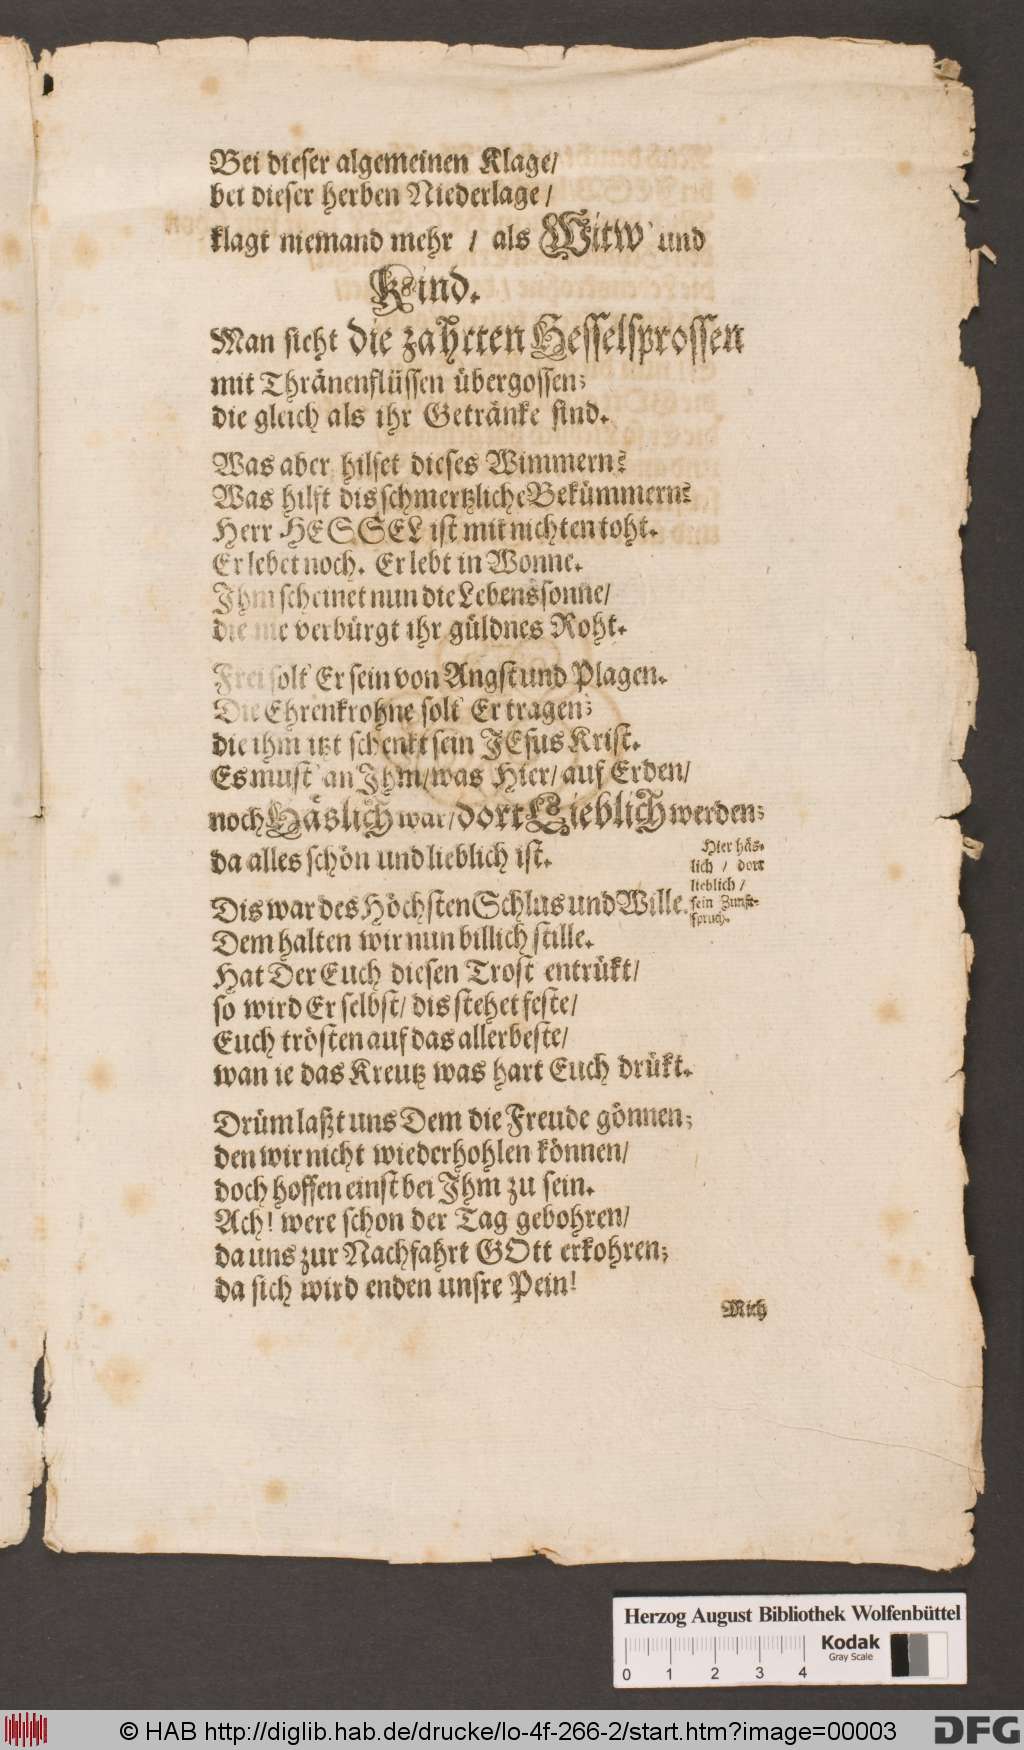 Bei dieser algemeinen Klage/
bei dieser herben Niederlage/
klagt niemand mehr / als Witw' und
Kind.
Man sieht die zahrten Hesselsprossen
mit Thränenflüssen übergossen;
die gleich als ihr Getränke sind.
Was aber hilfet dieses Wimmern?
Was hilft dis schmertzliche Bekümmern?
Herr HESSEL ist mit nichten toht.
Er lebet noch. Er lebt in Wonne.
Ihm scheinet nun die Lebenssonne/
die nie verbürgt ihr güldnes Roht.
Frei solt' Er sein von Angst und Plagen.
Die Ehrenkrohne solt' Er tragen;
die ihm itzt schenkt sein JEsus Krist.
Es must' an Ihm/ was Hier/ auf Erden/
noch Häslich war/ dort Lieblich werden;
da alles schön und lieblich ist.
Hier häs-
lich / dort
lieblich /
sein Zunft-
spruch.
Dis war des Höchsten Schlus und Wille.
Dem halten wir nun billich stille.
Hat Der Euch diesen Trost entrükt/
so wird Er selbst/ dis stehet feste/
Euch trösten auf das allerbeste/
wan ie das Kreutz was hart Euch drükt.
Drüm laßt uns Dem die Freude gönnen;
den wir nicht wiederhohlen können/
doch hoffen einst bei Ihm zu sein.
Ach! were schon der Tag gebohren/
da uns zur Nachfahrt GOtt erkohren;
da sich wird enden unsre Pein!
Mich
Herzog August Bibliothek Wolfenbüttel
Kodak
Gray Scale
0 1 2 3 4
© HAB http://diglib.hab.de/drucke/lo-4f-266-2/start.htm?image=00003
DFG